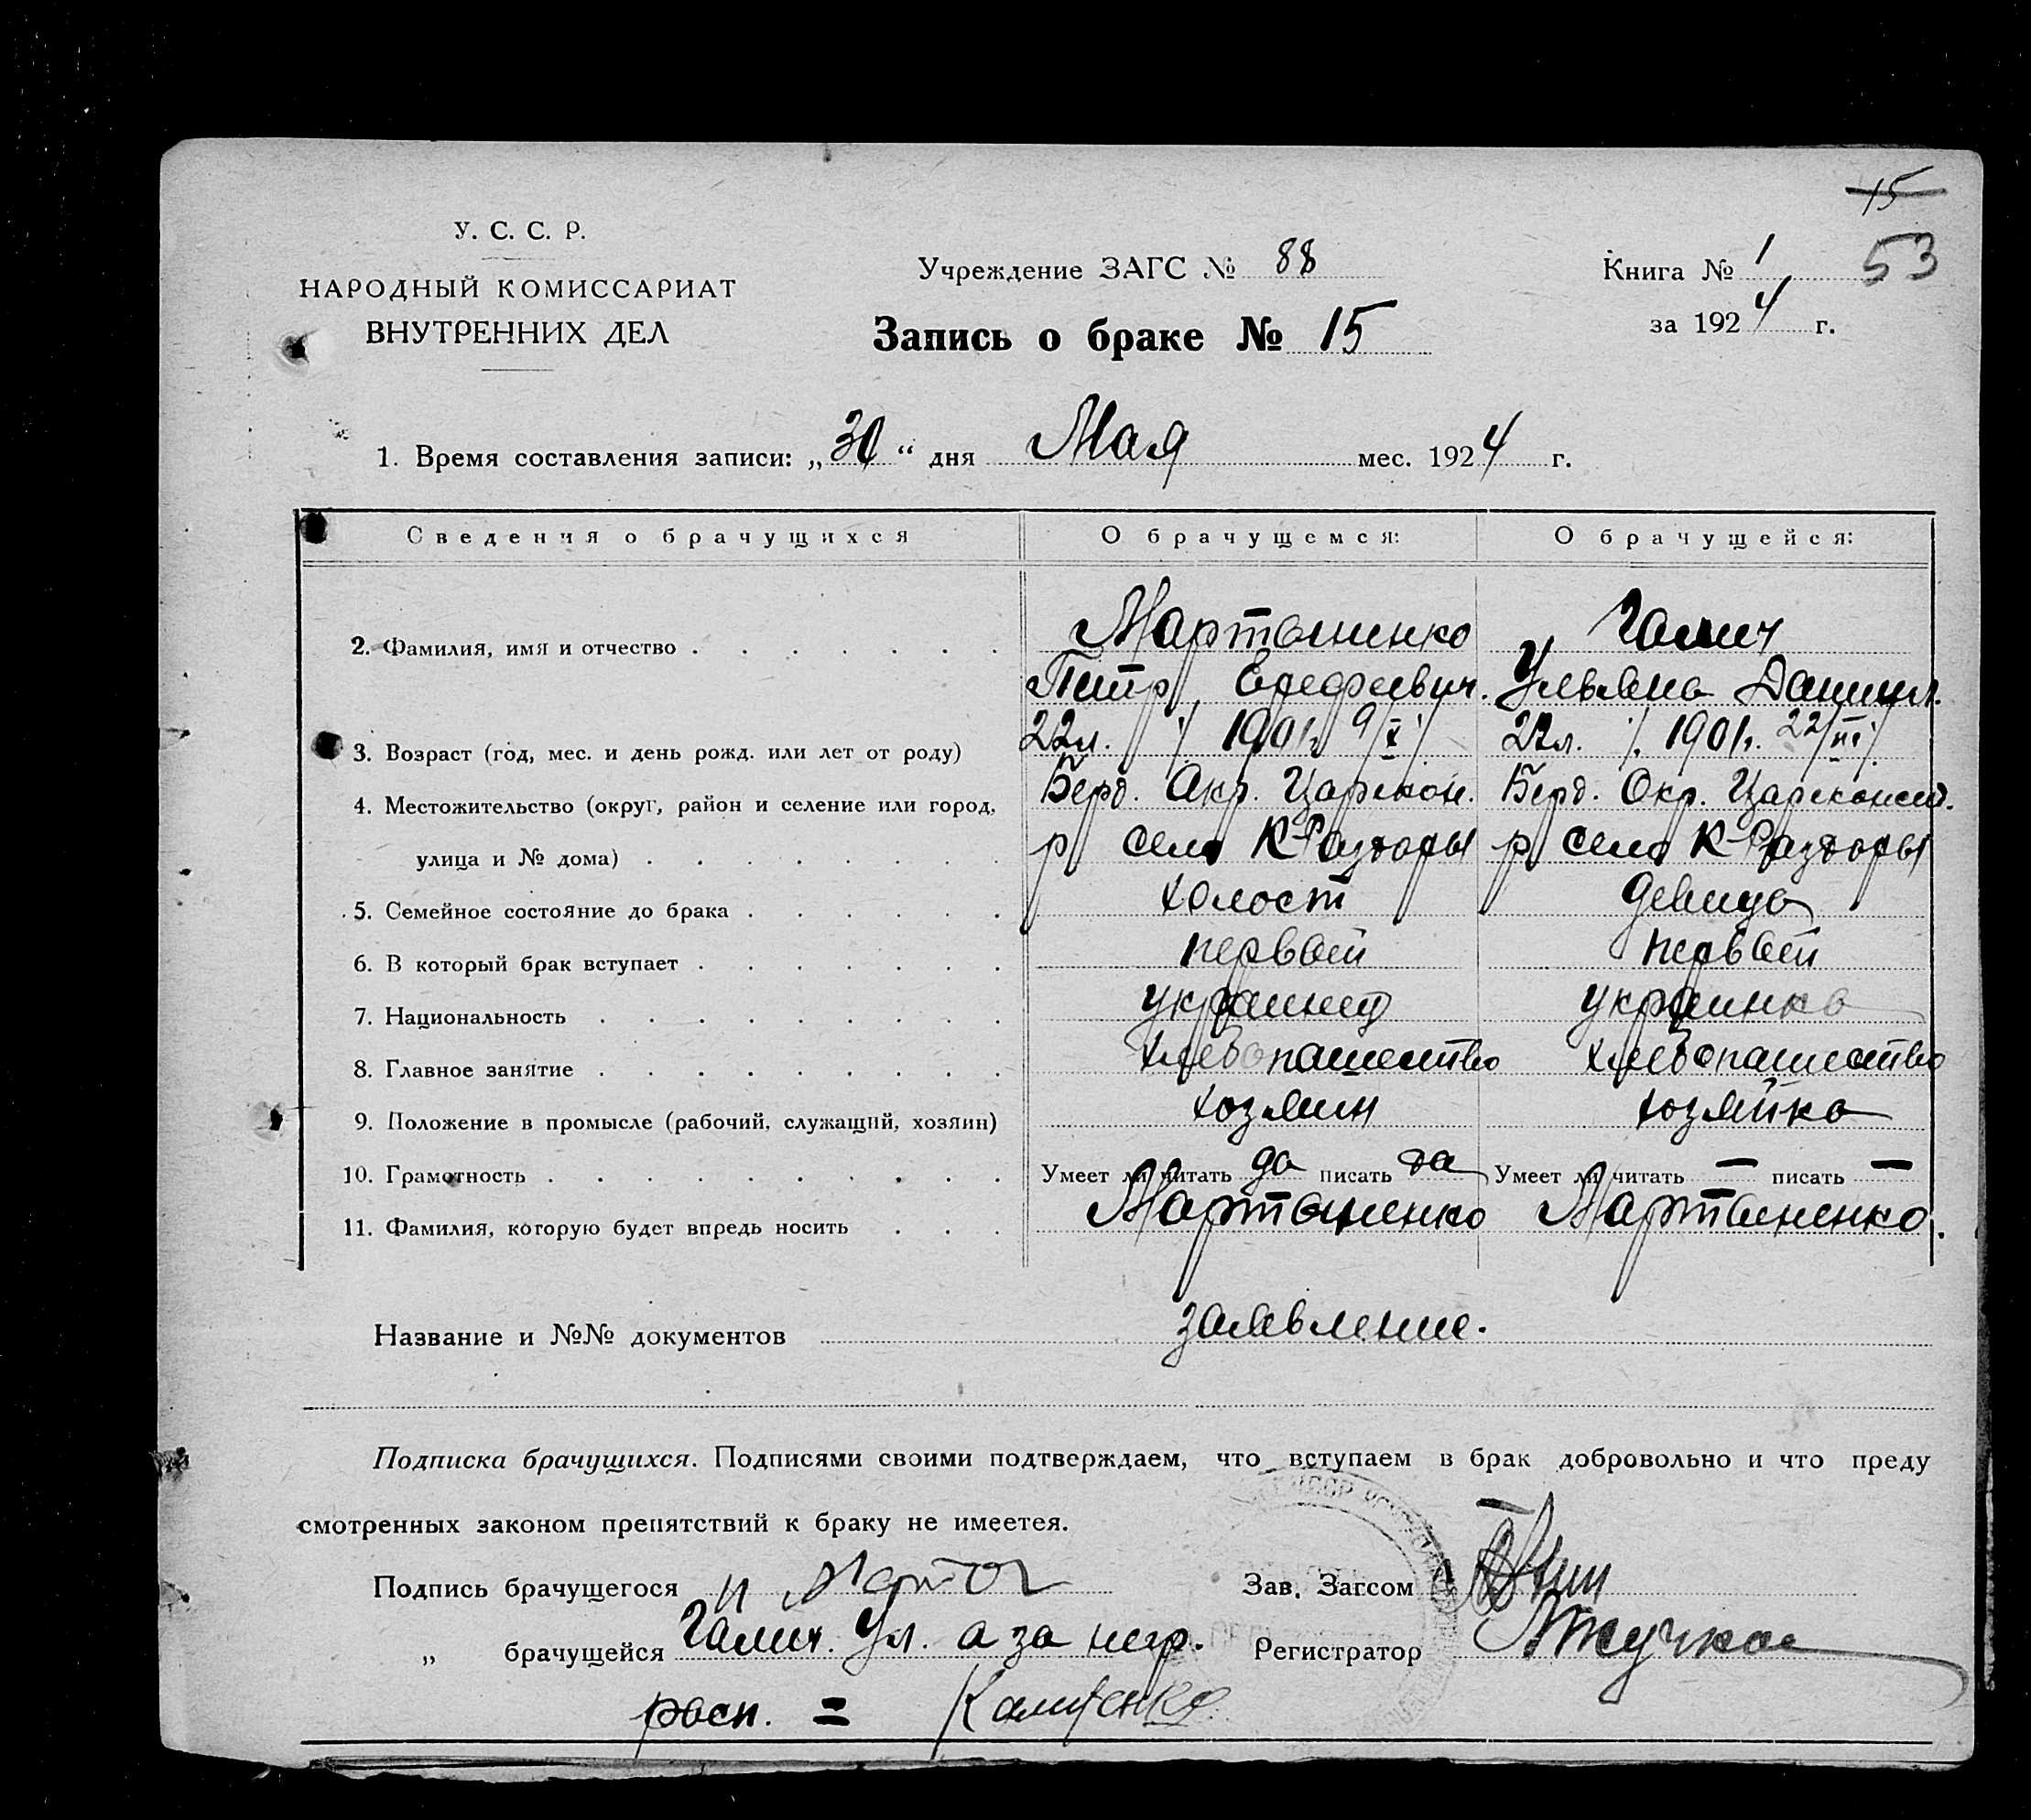 15
У. С. С. Р.
НАРОДНЫЙ КОМИССАРИАТ
ВНУТРЕННИХ ДЕЛ
Учреждение ЗАГС № 88
Книга № 1 53
за 1924 г.
Запись о браке № 15
1. Время составления записи: „ “ дня Мая мес. 1924 г.
Сведения о брачущихся О брачущемся: О брачущейся:
2. Фамилия, имя и отчество Мартыненко Галич
Петр Ульяна Даниил.
3. Возраст (год, мес. и день рожд. или лет от роду) 22л. 1901г. 9/X 1901г. 22/
4. Местожительство (округ, район и селение или город, Берд. Окр. Царекон. Берд. Окр. Цареконст.
улица и № дома) р село К-Раздоры р село К-Раздоры
5. Семейное состояние до брака холост девица
6. В который брак вступает первый первый
7. Национальность украинец украинка
8. Главное занятие хлебопашество хлебопашество
9. Положение в промысле (рабочий, служащий, хозяин) хозяин хозяйка
10. Грамотность Умеет ли читать да писать да Умеет ли читать — писать —
11. Фамилия, которую будет впредь носить Мартыненко Мартыненко.
Название и №№ документов заявление.
Подписка брачущихся. Подписями своими подтверждаем, что вступаем в брак добровольно и что преду
смотренных законом препятствий к браку не имеется.
Подпись брачущегося Зав. Загсом
„ брачущейся Галич. Ул. а за негр. Регистратор
расп. =